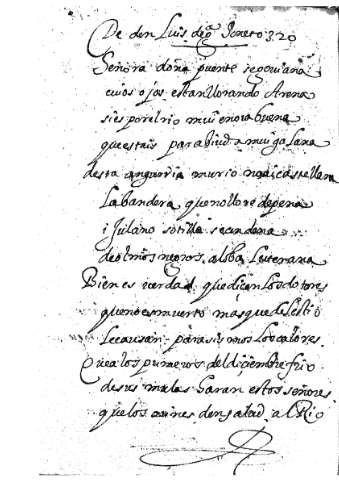 De don Luis de gª Soneto 320
Señora doña puente segouiana
cuios ojos estan llorando Arena
si es por el rio mui enorabuena
que estais para biuda mui galana
desta anguria murio no ai castellana
Labandera que no llore de pena
i Julano sotillo se condena
de olmos negros, a loba Luterana
Bien es verdad que diçen los dotores
que no es muerto mas que del estio
Le causan parasismos los calores
Que a los primeros del diçiembre frio
de sus mulas haran estos señores
que los orines den salud al Rio